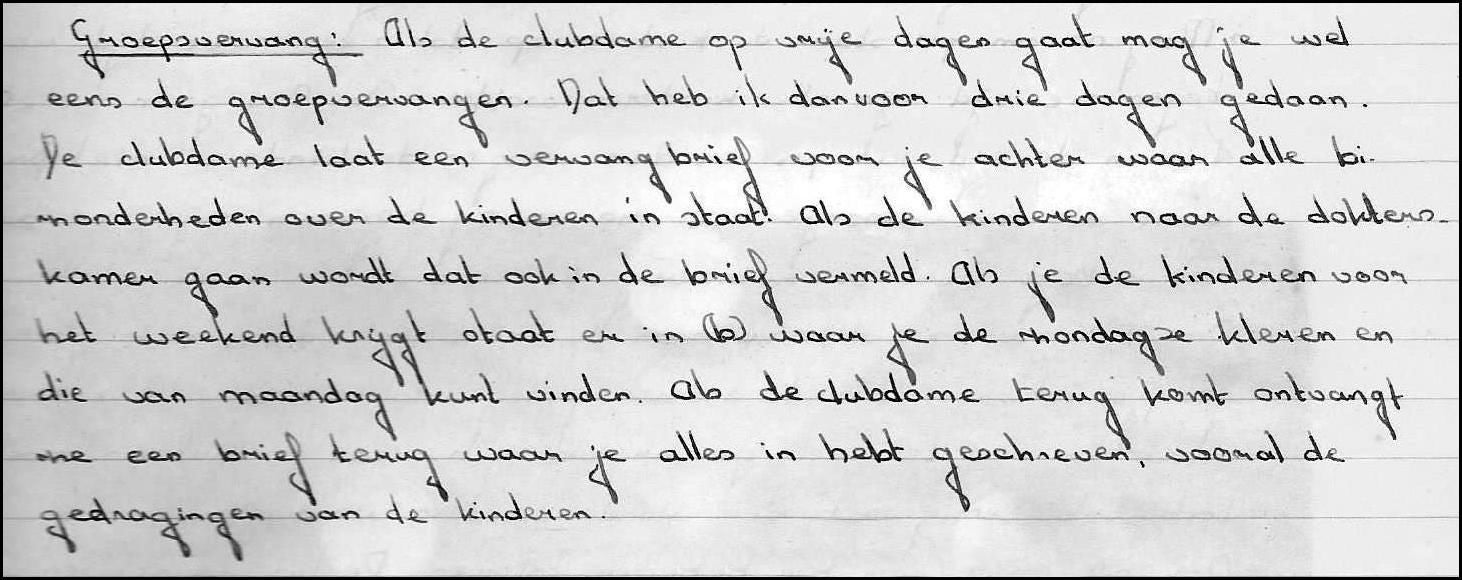 Groepsvervang: Als de clubdame op vrije dagen gaat mag je wel
eens de groepvervangen. Dat heb ik dan voor drie dagen gedaan.
De clubdame laat een vervang brief voor je achter waar alle bi-
zonderheden over de kinderen in staat. Als de kinderen naar de dokters-
kamer gaan wordt dat ook in de brief vermeld. Als je de kinderen voor
het weekend krijgt staat er in (b) waar je de zondagse kleren en
die van maandag kunt vinden. Als de clubdame terug komt ontvangt
ze een brief terug waar je alles in hebt geschreven, vooral de
gedragingen van de kinderen.